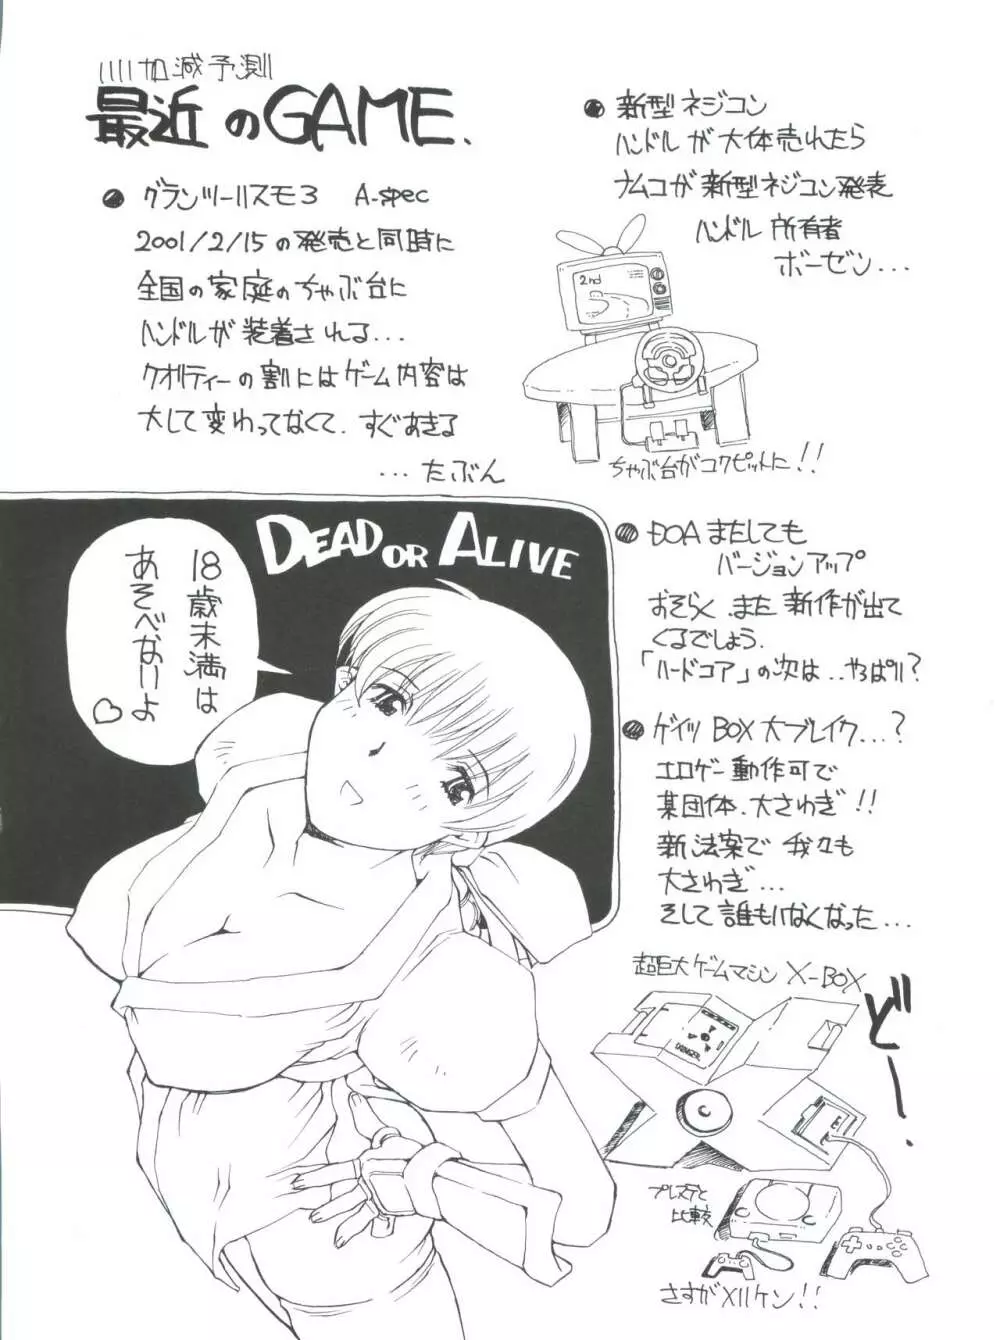 いい加減予測
最近のGAME.
● グランツーリスモ3 A-spec
2001/2/15の発売と同時に
全国の家庭のちゃぶ台に
ハンドルが装着される...
クオリティーの割にはゲーム内容は
大して変わってなくて、すぐあきる
...たぶん
● 新型ネジコン
ハンドルが大体売れたら
ナムコが新型ネジコン発表
ハンドル所有者
ボーゼン...
2nd
ちゃぶ台がコクピットに!!
DEAD OR ALIVE
18歳末満は
あそべないよ♡
● DOAまたしても
バージョンアップ
おそらく、また新作が出て
くるでしょう.
「ハードコア」の次は..やっぱり?
● ゲイツBOX大ブレイク...?
エロゲー動作可で
某団体、大さわぎ!!
新法案で我々も
大さわぎ...
そして誰もいなくなった...
超巨大ゲームマシン X-BOX
どー.
DANGER
プレステと
比較
さすがメリケン!!